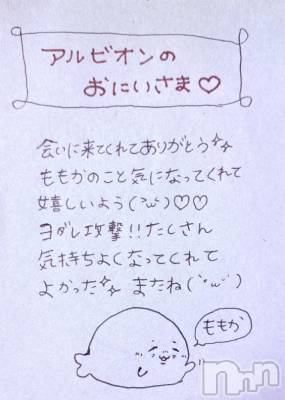 アルビオンの
おにいさま♡
会いに来てくれてありがとう
ももかのこと気になってくれて
嬉しいよう(˘ω˘)♡♡
ヨダレ攻撃!!たくさん
気持ちよくなってくれて
よかった またね(˘ω˘)
ももか